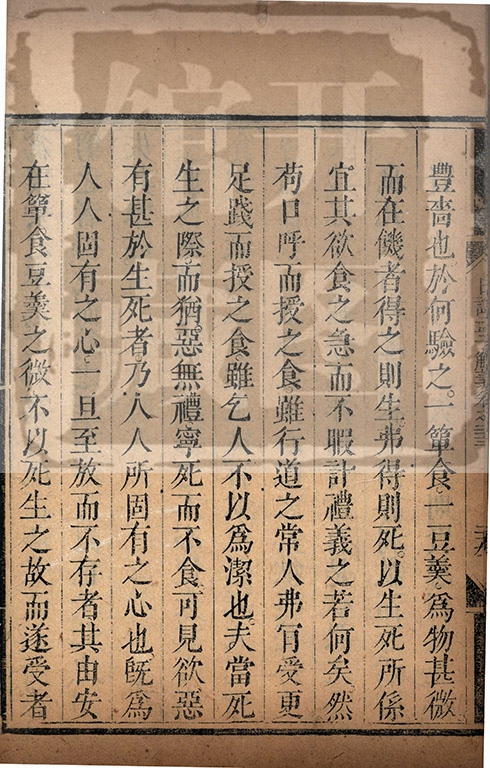 豐嗇也於何驗之一簞食一豆羹為物甚微
而在饑者得之則生弗得則死以生死所係
宜其欲食之急而不暇計禮義之若何矣然
苟口呼而授之食雖行道之常人弗肎受更
足踐而授之食雖乞人不以為潔也夫當死
生之際而猶惡無禮寧死而不食可見欲惡
有甚於生死者乃人人所固有之心也旣為
人人固有之心一旦至放而不存者其由安
在簞食豆羹之微不以死生之故而遂受者